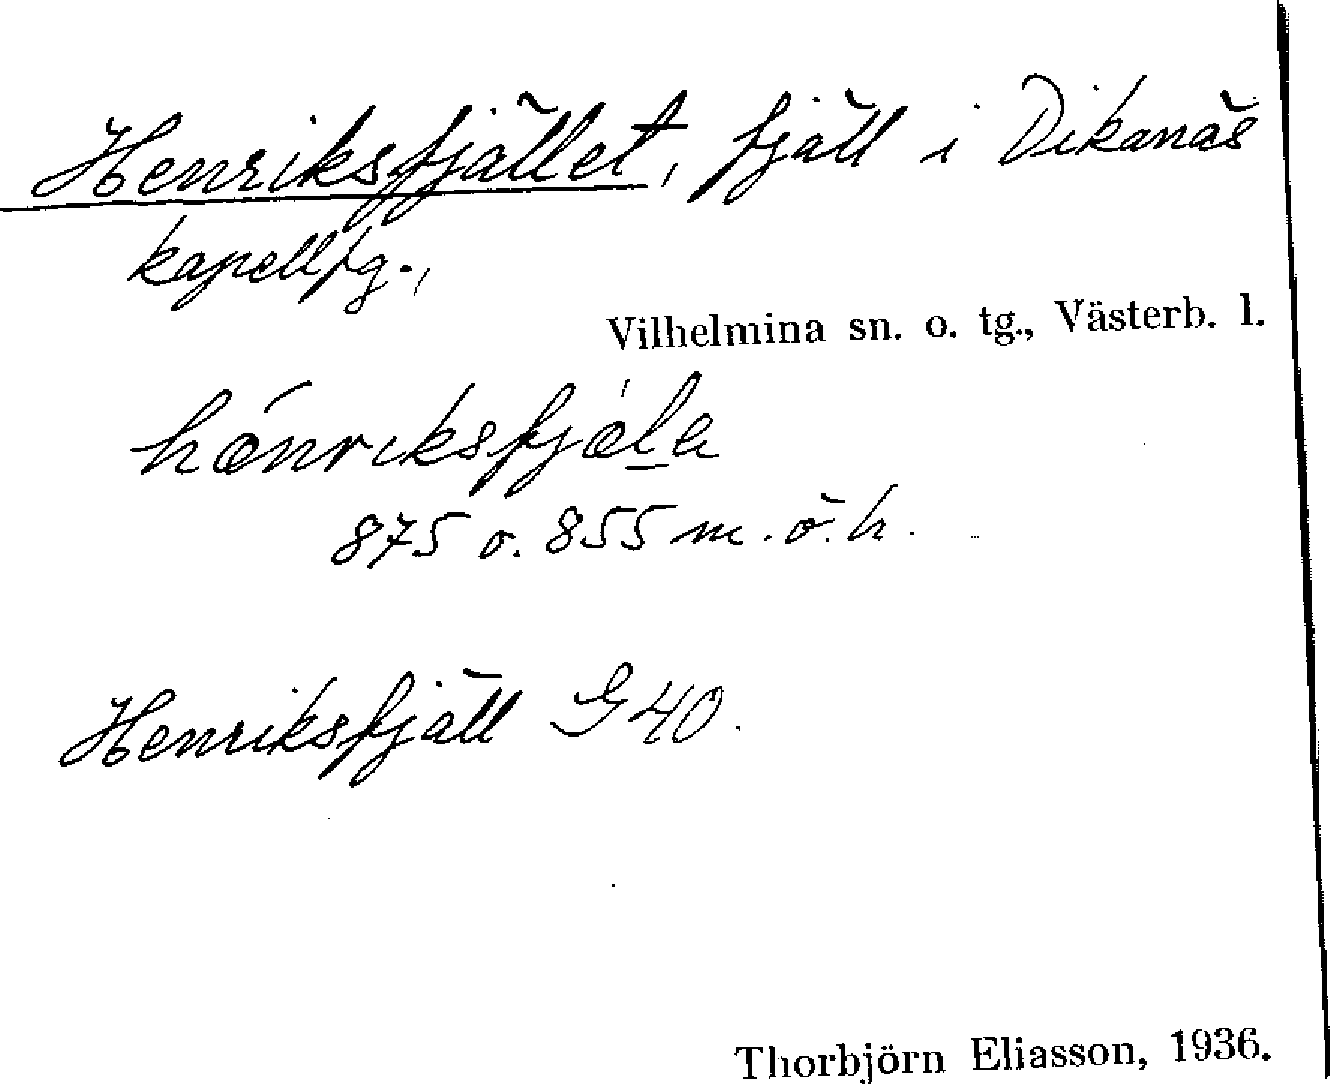 Henriksfjället, fjäll i Dikanäs
kapellfg.,
Vilhelmina sn. o. tg., Västerb. l.
hǽnriksfjæ̀la
875 o. 855 m. ö. h.
Henriksfjäll G 40.
Thorbjörn Eliasson, 1936.